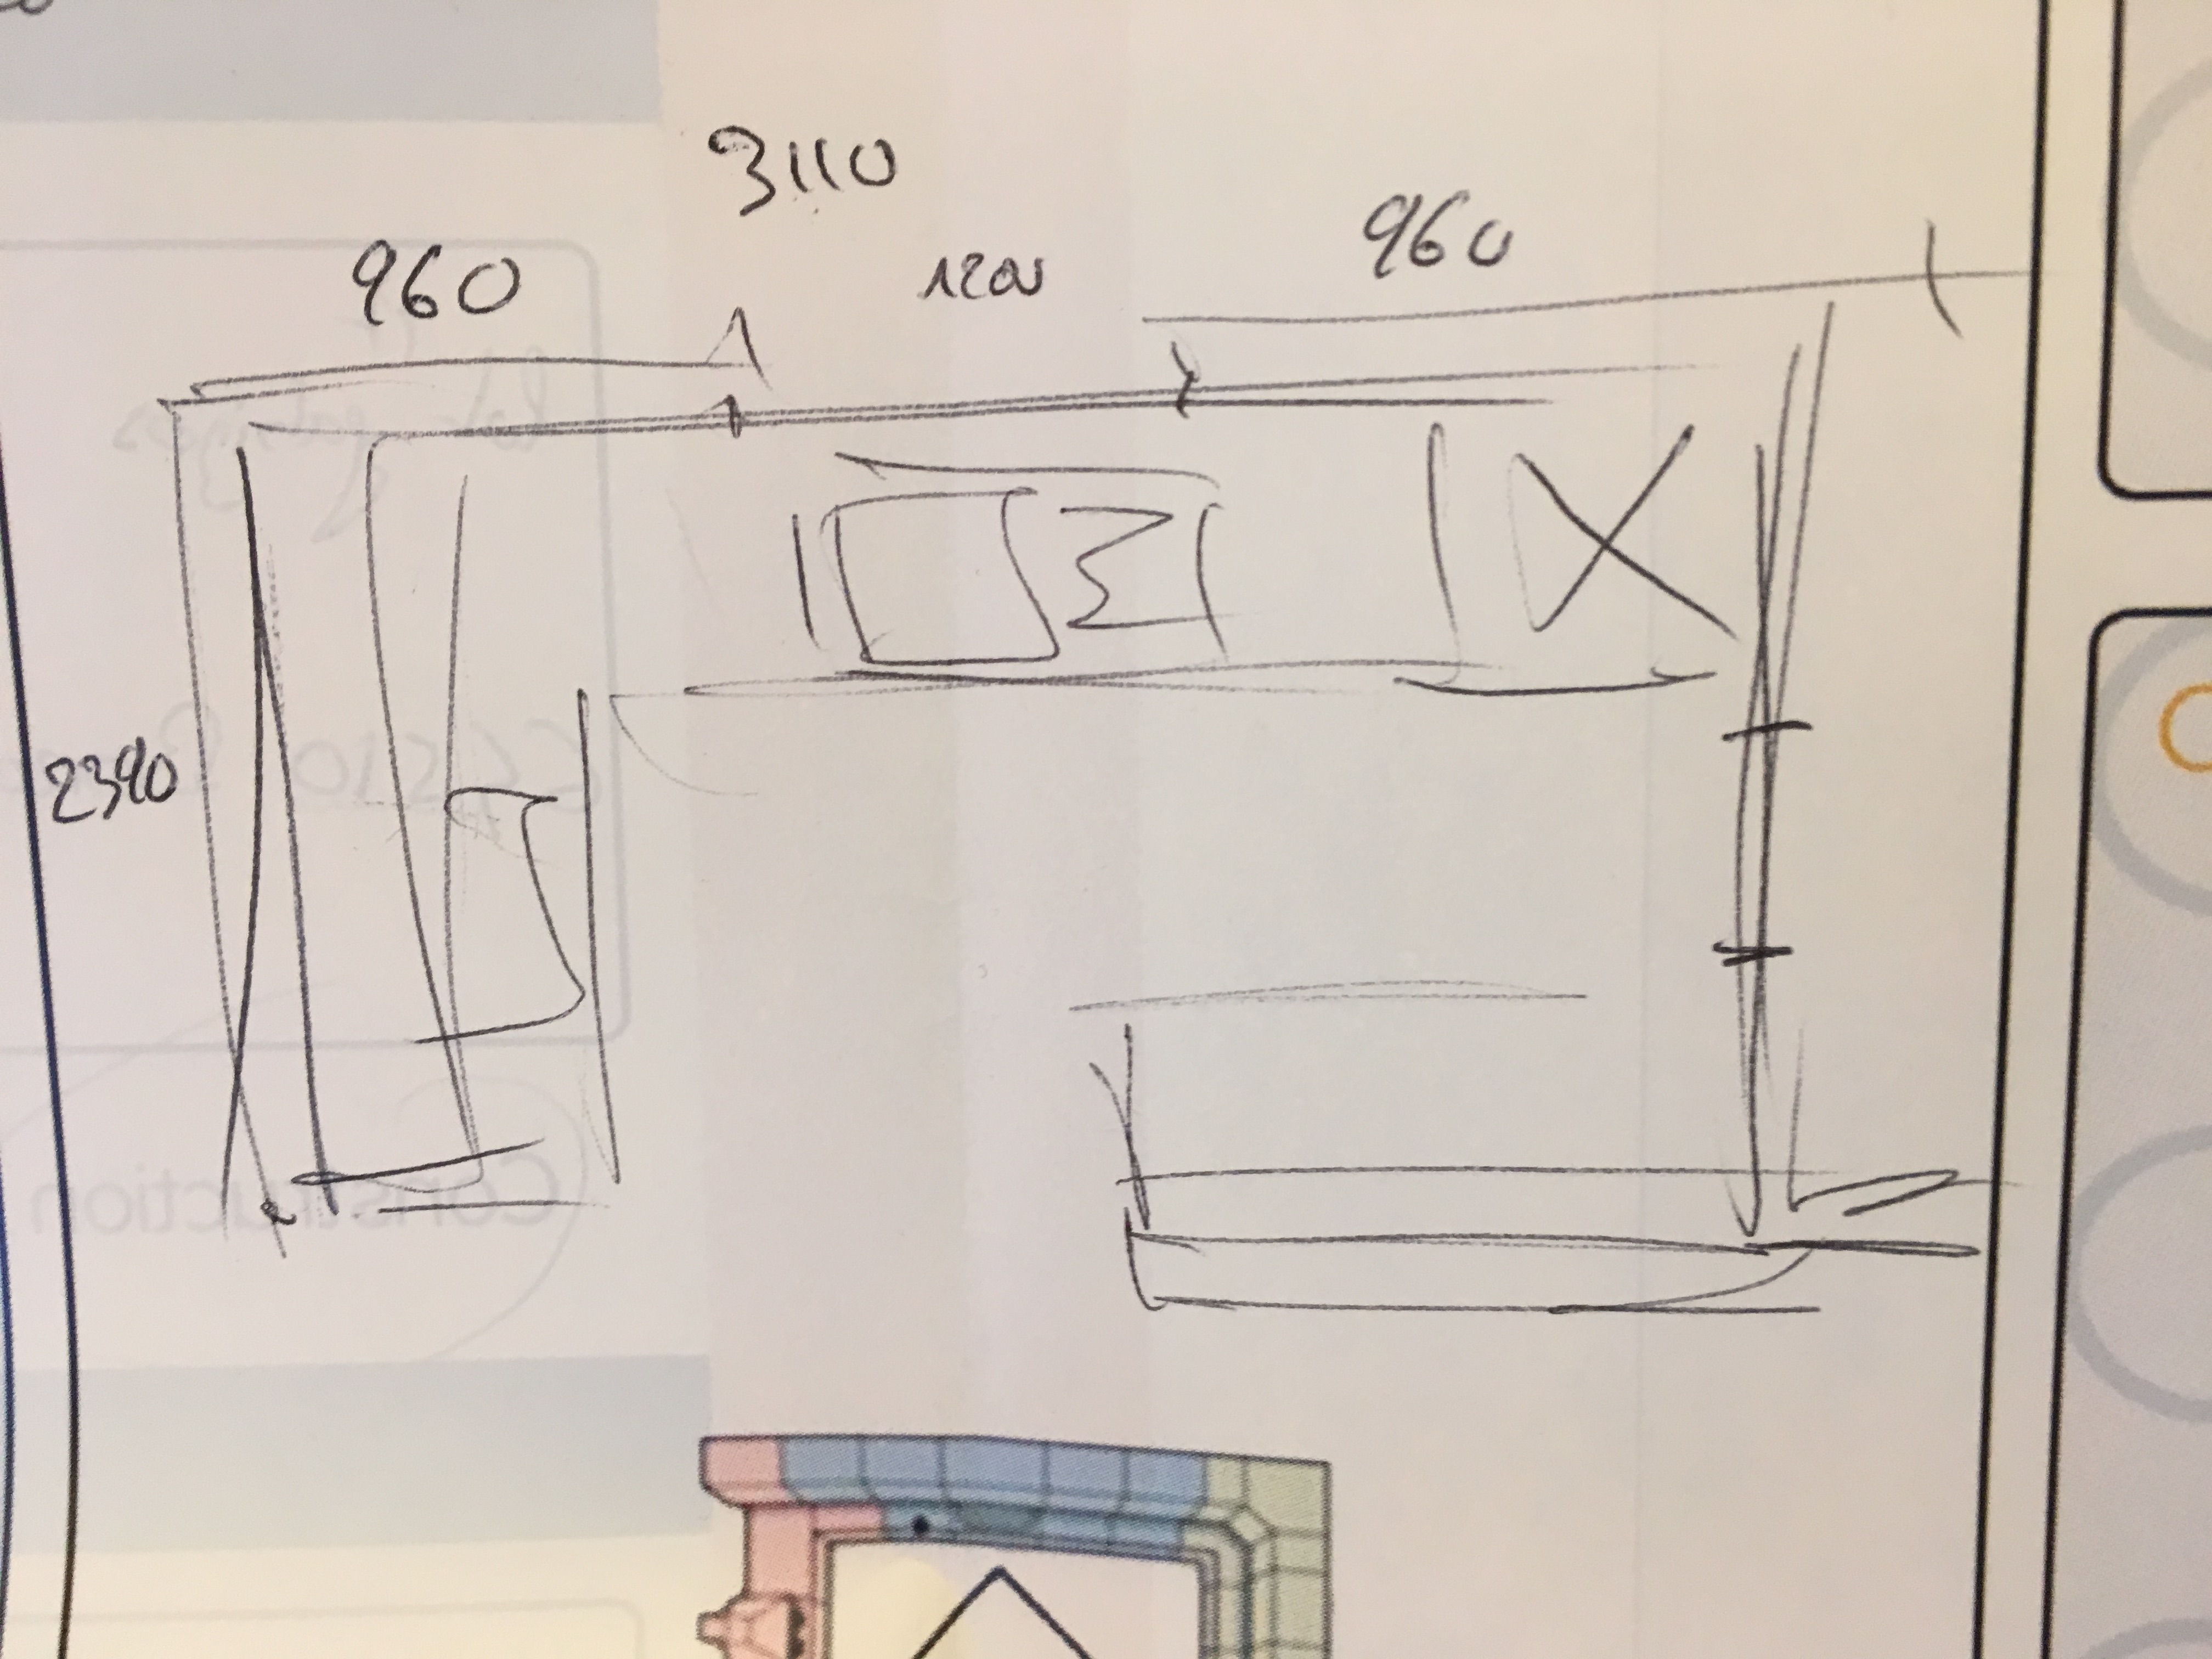 3110
960
1200
960
2390
Construction